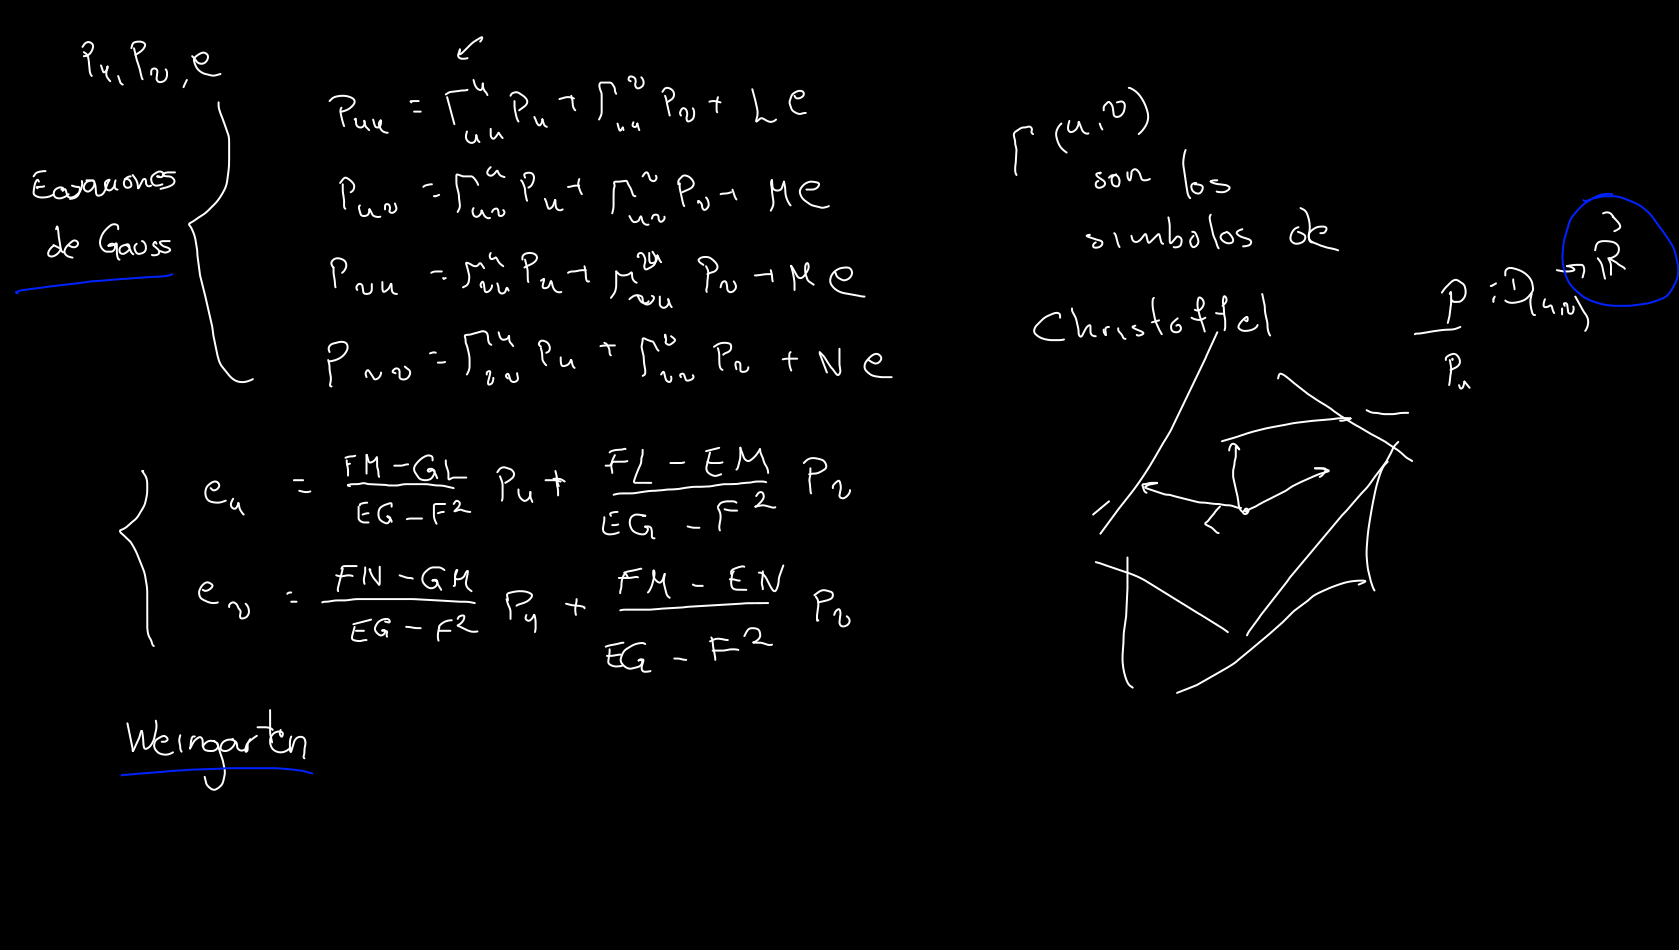 P_u, P_v, e
Ecuaciones
de Gauss
P_uu = Γ_uu^u P_u + Γ_uu^v P_v + L e
P_uv = Γ_uv^u P_u + Γ_uv^v P_v + M e
P_vu = Γ_vu^u P_u + Γ_vu^v P_v + M e
P_vv = Γ_vv^u P_u + Γ_vv^v P_v + N e
e_u = (FM - GL)/(EG - F^2) P_u + (FL - EM)/(EG - F^2) P_v
e_v = (FN - GM)/(EG - F^2) P_u + (FM - EN)/(EG - F^2) P_v
Weingarten
Γ(u,v)
son los
simbolos de
Christoffel
P : D(u,v) → ℝ^3
P_u